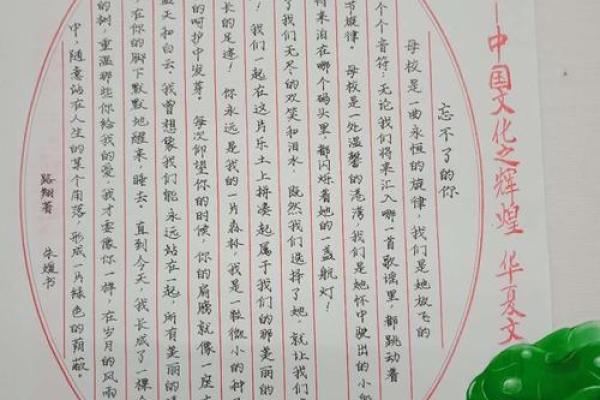 中国文化之辉煌 华夏文
忘不了的你
母校是一曲永恒的旋律，我们是她放飞的
个个音符；无论我们将来汇入哪一首歌谣里，都跳动着
节旋律。母校是一处温馨的港湾，我们是她怀中驶出的小
将来泊在哪个码头里，都闪烁着她的一盏航灯！
了我们无尽的欢笑和泪水，既然我们选择了她，就让我们
！我们一起在这片乐土上拼凑起属于我们的那美丽的
长的足迹！你永远是我的一片森林，我是一粒微小的种
的呵护中发芽。每次仰望你的时候，你的肩膀就像一座
蓝天和白云。我曾想像我们能永远站在一起，所有美丽的
在你的脚下默默地醒来、睡去。直到今天，我长成了一棵
的树，重温那些你给我的爱，我才要像你一样，在岁月的风雨
中，随意站在人生的某个角落，形成一片绿色的荫蔽。
路翔著 朱媛书